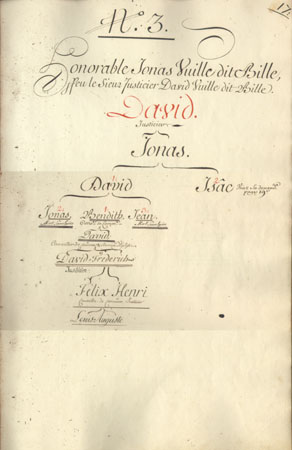 17.
N.° 3.
Honorable Jonas Vuille dit Bille,
ffeu le Sieur Justicier David Vuille dit Bille.
David.
Justicier
Jonas.
David Isâc
Jonas Bendith Jean
David
David Frederich
Justicier
Felix Henri
Louis Auguste